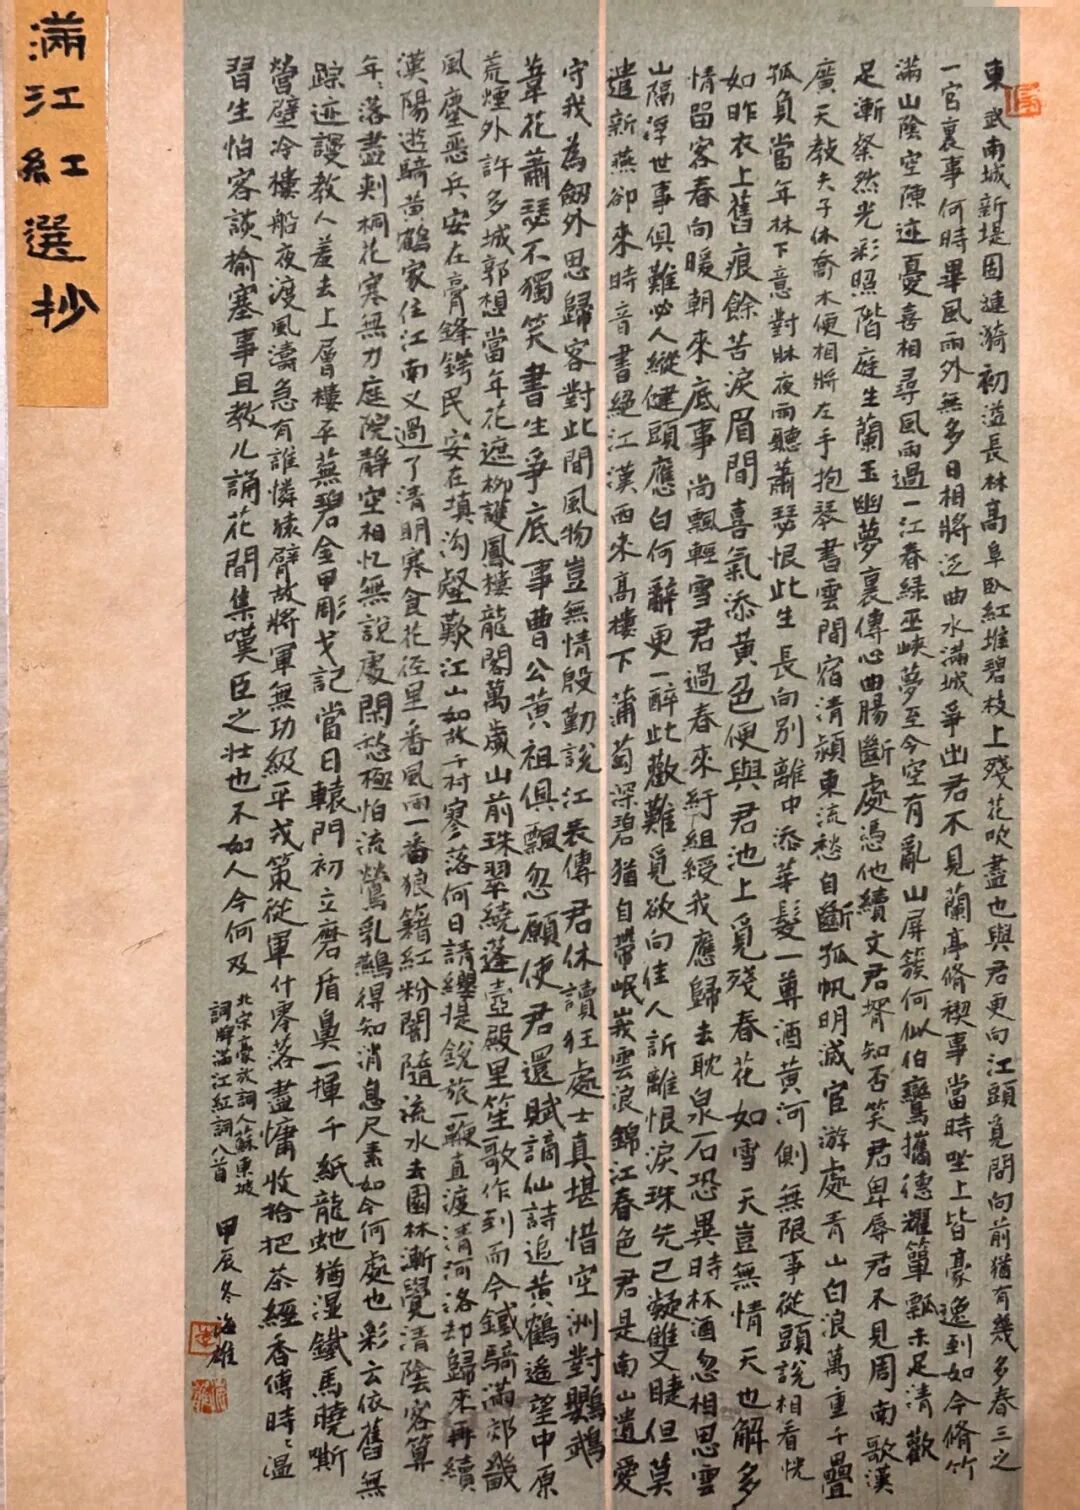 滿江紅選抄
東武南城新堤固漣漪初溢長林高阜臥紅堆碧枝上殘花吹盡也與君更向江頭覓問向前猶有幾多春三之
一官裏事何時畢風雨外無多日相將泛曲水滿城爭出君不見蘭亭脩禊事當時坐上皆豪逸到如今脩竹
滿山陰空陳迹憂喜相尋風雨過一江春綠巫峽夢至今空有亂山屏簇何似伯鸞攜德耀簞瓢未足清歡
足漸粲然光彩照階庭生蘭玉幽夢裏傳心曲腸斷處憑他續文君壻知否笑君卑辱君不見周南歌漢
廣天教夫子休喬木便相將左手抱琴書雲間宿清潁東流愁自斷孤帆明滅宦游處青山白浪萬重千疊
孤負當年林下意對牀夜雨聽蕭瑟恨此生長向別離中添華髮一尊酒黃河側無限事從頭說相看恍
如昨衣上舊痕餘苦淚眉間喜氣添黃色便與君池上覓殘春花如雪天豈無情天也解多
情留客春向暖朝來底事尚飄輕雪君過春來紆組綬我應歸去耽泉石恐異時杯酒忽相思雲
山隔浮世事俱難必人縱健頭應白何辭更一醉此歡難覓欲向佳人訴離恨淚珠先已凝雙睫但莫
遣新燕卻來時音書絕江漢西來高樓下蒲萄深碧猶自帶岷峩雲浪錦江春色君是南山遺愛
守我為劒外思歸客對此間風物豈無情殷勤說江表傳君休讀狂處士真堪惜空洲對鸚鵡
葦花蕭瑟不獨笑書生爭底事曹公黃祖俱飄忽願使君還賦謫仙詩追黃鶴遙望中原
荒煙外許多城郭想當年花遮柳護鳳樓龍閣萬歲山前珠翠繞蓬壺殿里笙歌作到而今鐵騎滿郊畿
風塵惡兵安在膏鋒鍔民安在填溝壑歎江山如故千村寥落何日請纓提銳旅一鞭直渡清河洛却歸來再續
漢陽遊騎黃鶴家住江南又過了清明寒食花徑里番風雨一番狼籍紅粉闇隨流水去園林漸覺清陰客算
年年落盡刺桐花寒無力庭院靜空相忆無說處閑愁極怕流鶯乳鷰得知消息尺素如今何處也彩云依舊無
踪迹謾教人羞去上層樓平蕪碧金甲彫戈記當日轅門初立磨盾鼻一揮千紙龍虵猶濕鐵馬曉嘶
營壁冷樓船夜渡風濤急有誰憐猿臂故將軍無功級平戎策從軍什零落盡慵收拾把茶經香傳時時溫
習生怕客談榆塞事且教儿誦花間集嘆臣之壯也不如人今何及
北宋豪放詞人蘇東坡
詞牌滿江紅詞八首
甲辰冬海雄